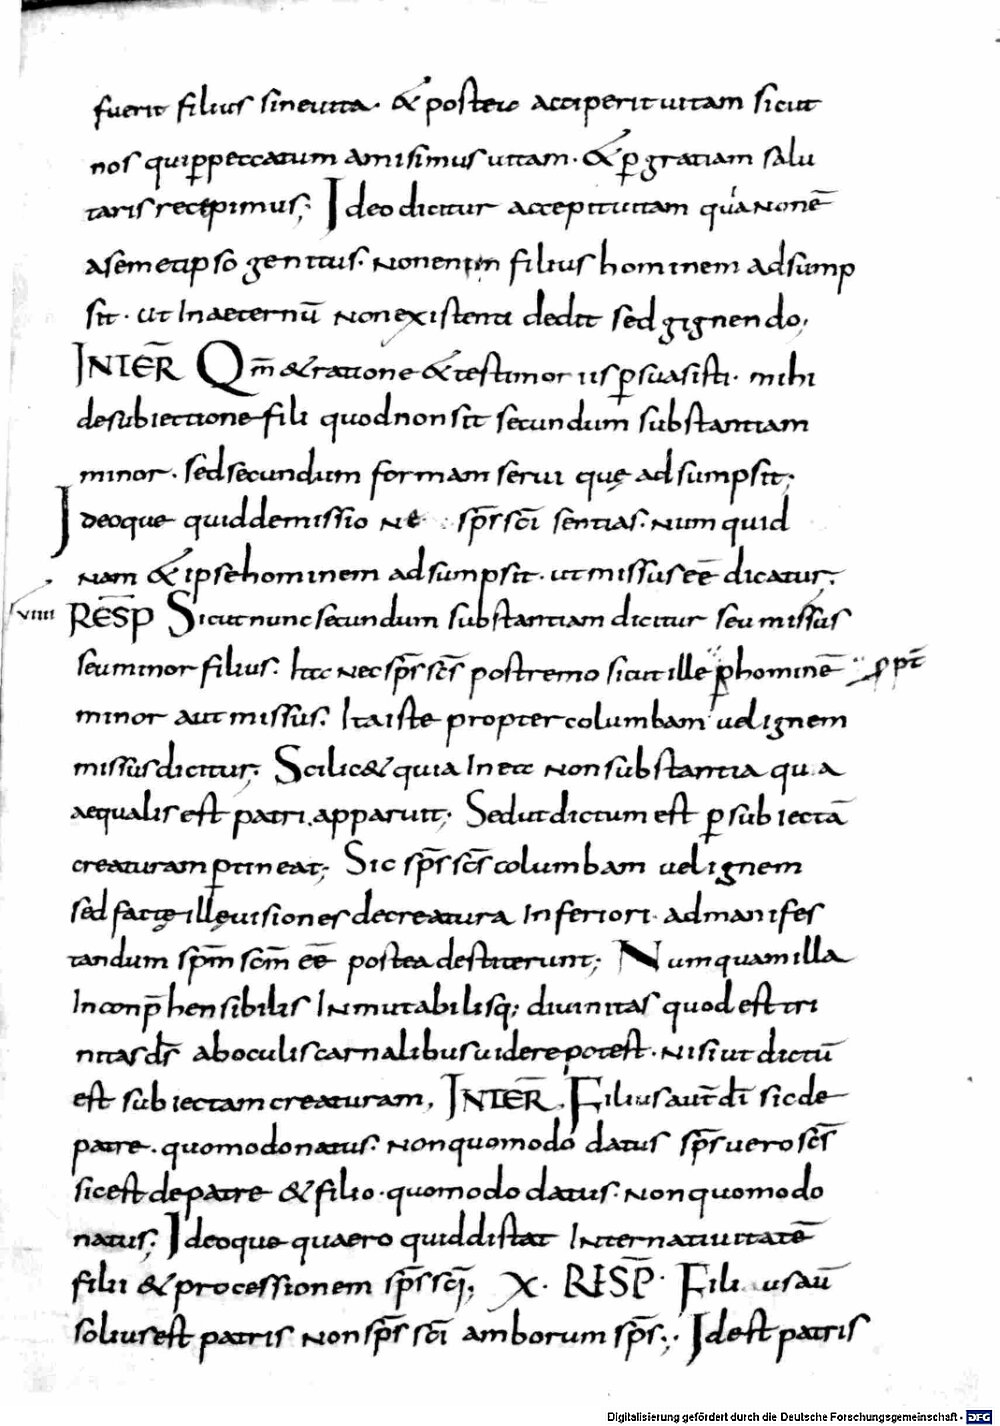 fuerit filius sine uita· & postea acciperit uitam sicut
nos qui p̲peccatum amisimus uitam· & p̲ gratiam salu
taris recepimus; Ideo dicitur accepit uitam quia non ē
a semetipso genitus· non enim filius hominem adsump
sit· ut in aeternū non existenti dedit sed gignendo;
INTER̄ Qm̄ & ratione & testimoniis p̲suasisti· mihi
de subiectione fili quod non sit secundum substantiam
minor· sed secundum formam serui quę adsumpsit;
Ideoque quid de missione sp̄s sc̄i sentias· numquid
nam & ipse hominem adsumpsit· ut missus eē dicatur;
viiii RESP̄ Sicut nunc secundum substantiam dicitur seu missus
seu minor filius· Ita nec sp̄s sc̄s postremo sicut ille p̲ hominē ppt̄
minor aut missus· Ita iste propter columbam uel ignem
missus dicitur; Scilic& quia in ea non substantia qua
aequalis est patri apparuit; Sed ut dictum est p̲ subiectā
creaturam p̲tineat; Sic sp̄s sc̄s columbam uel ignem
sed factę illę uisiones de creatura inferiori· ad manifes
tandum sp̄m sc̄m eē postea destiterunt; Numquam illa
inconp̄hensibilis inmutabilisq; diuinitas quod est tri
nitas d̄s ab oculis carnalibus uidere potest· nisi ut dictū
est subiectam creaturam, INTER̄. Filius aut̄ d̄i sic de
patre· quomodo natus· non quomodo datus sp̄s uero sc̄s
sic est de patre & filio· quomodo datus· non quomodo
natus; Ideoque quaero quid distat inter natiuitatē
filii & processionem sp̄s sc̄i; X· RESP̄· Filius aū
solius est patris non sp̄s sc̄i amborum sp̄s;· Id est patris
Digitalisierung gefördert durch die Deutsche Forschungsgemeinschaft - DFG